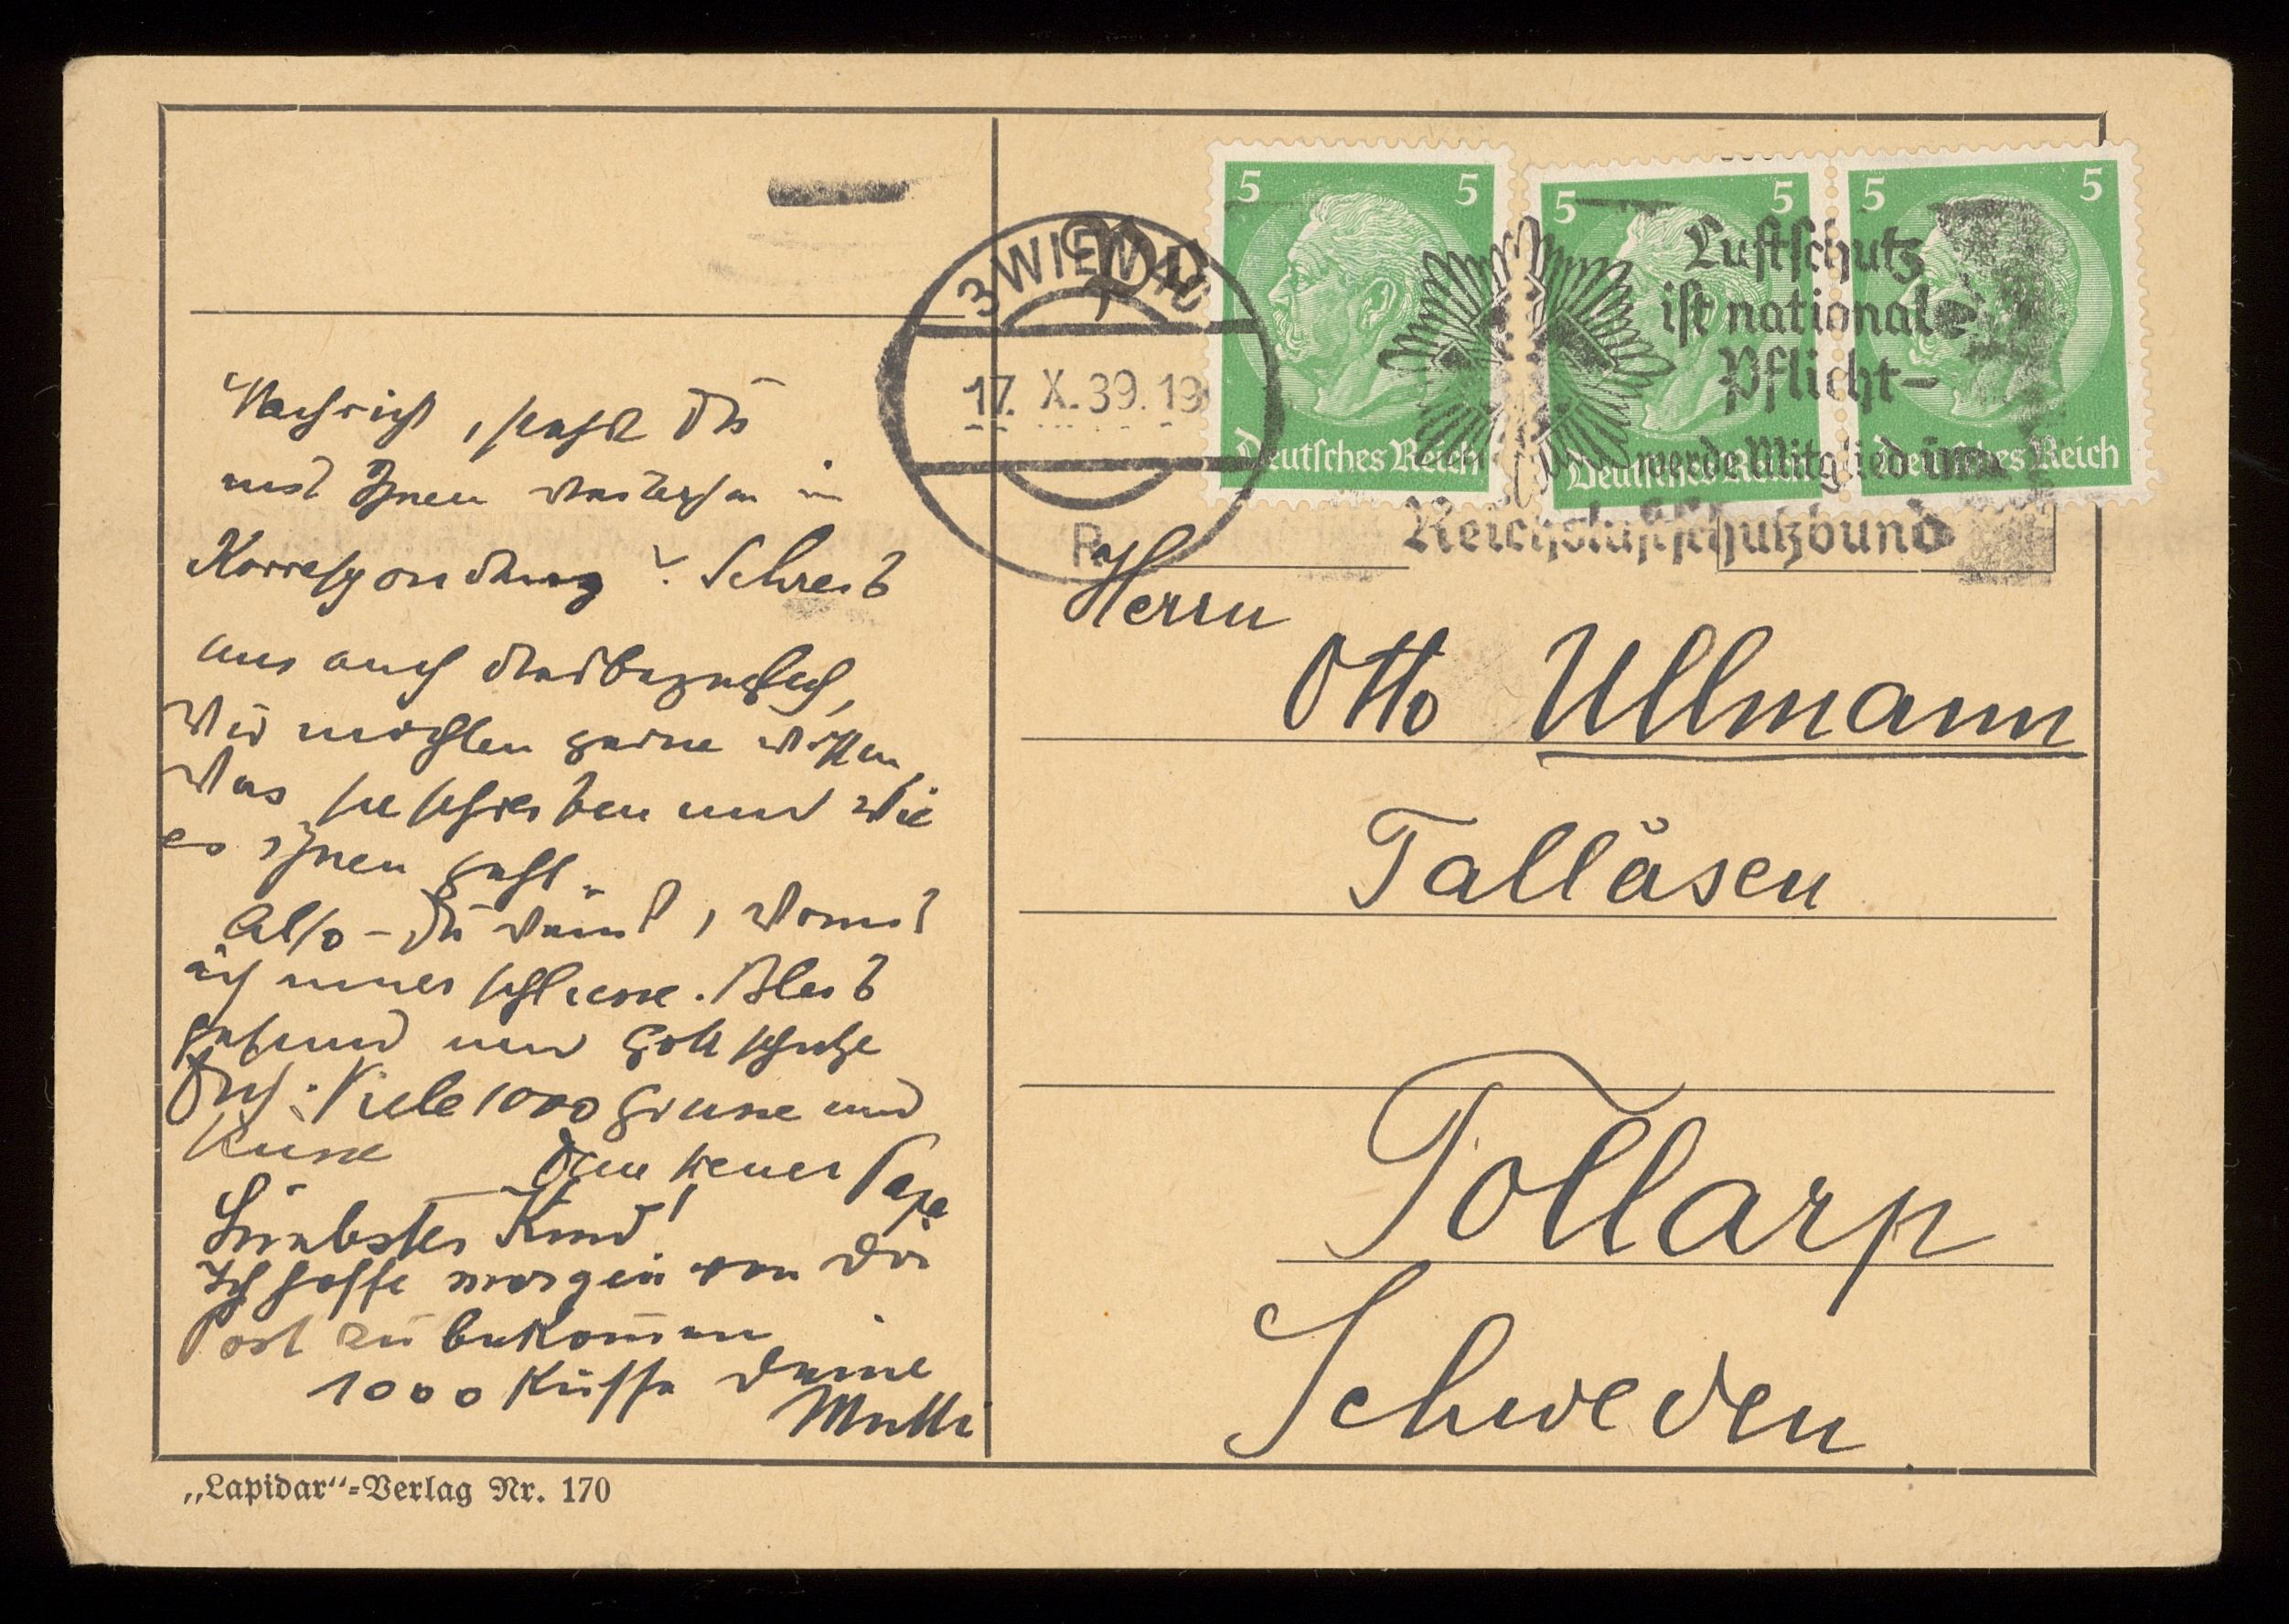 Nachricht, stehst Du
mit Ihnen weiterhin in
Korrespondenz? Schreib
uns auch diesbezüglich,
Wir möchten gerne wissen,
Was sie schreiben und wie
es ihnen geht.
Also – Du weinst, womit
ich immer schliesse. Bleib
gesund und Gott schütze
Dich. Viele 1000 Grüsse und
Küsse Dein treuer Papa
Liebstes Kind!
Ich hoffe morgen von Dir
Post zu bekommen
1000 Küsse Deine
Mutti
„Lapidar“-Verlag Nr. 170
3 WIEN
17. X. 39. 19
5 5
Deutsches Reich
5 5
Deutsches Reich
5 5
Deutsches Reich
Luftschutz
ist nationale
Pflicht–
werde Mitglied im
Reichsluftschutzbund
Herrn
Otto Ullmann
Tallåsen
Tollarp
Schweden